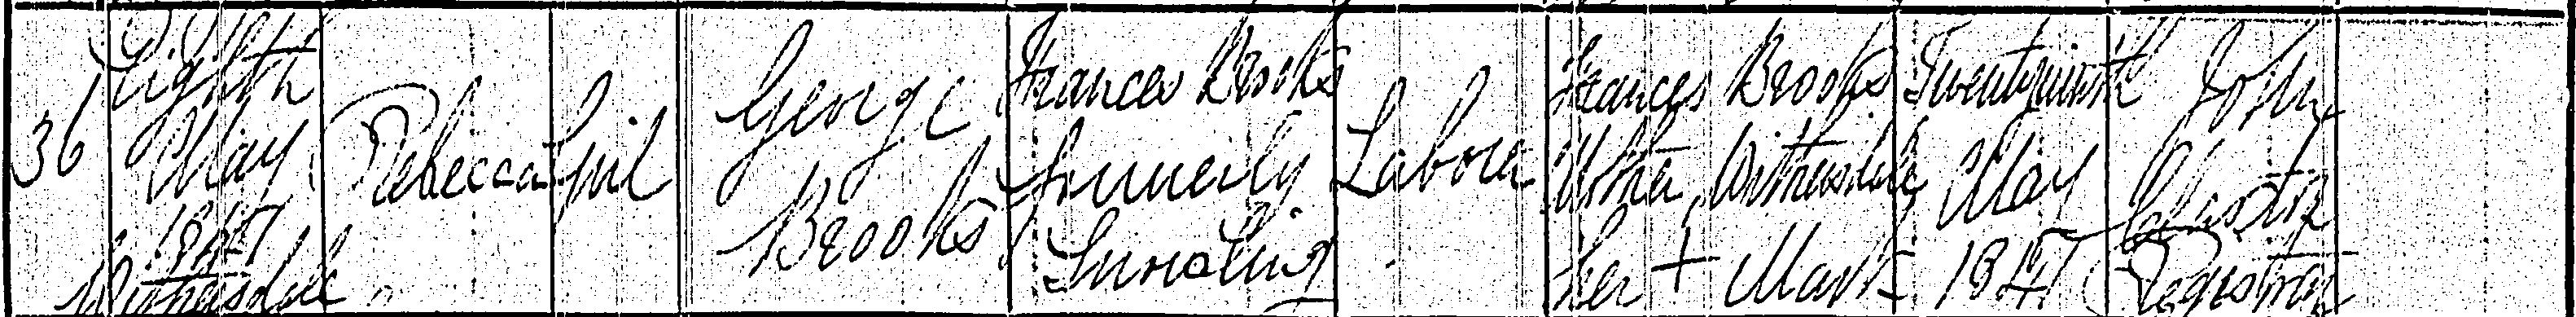 36
Eighth
May
1847
Withersdale
Rebecca
Girl
George
Brooks
Frances Brooks
formerly
Labourer
Frances Brooks
Mother Withersdale
her + Mark
Twentyninth
May
1847
John
Registrar